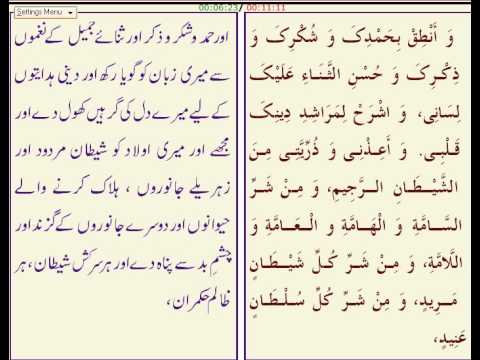 00:06:23 / 00:11:11
Settings Menu
وَ أَنْطِقْ بِحَمْدِکَ وَ شُکْرِکَ وَ
ذِکْرِکَ وَ حُسْنِ الثَّنَاءِ عَلَیْکَ
لِسَانِی، وَ اشْرَحْ لِمَرَاشِدِ دِینِکَ
قَلْبِی. وَ أَعِذْنِی وَ ذُرِّیَّتِی مِنَ
الشَّیْطَانِ الرَّجِیمِ، وَ مِنْ شَرِّ
السَّامَّةِ وَ الْهَامَّةِ وَ الْعَامَّةِ وَ
اللَّامَّةِ، وَ مِنْ شَرِّ کُلِّ شَیْطَانٍ
مَرِیدٍ، وَ مِنْ شَرِّ کُلِّ سُلْطَانٍ
عَنِیدٍ،
اور حمد و شکر و ذکر اور ثنائے جمیل کے نغموں
سے میری زبان کو گویا رکھ اور دینی ہدایتوں
کے لیے میرے دل کی گرہیں کھول دے اور
مجھے اور میری اولاد کو شیطان مردود اور
زہریلے جانوروں ، ہلاک کرنے والے
حیوانوں اور دوسرے جانوروں کے گزند اور
چشم بد سے پناہ دے اور ہر سرکش شیطان، ہر
ظالم حکمران،